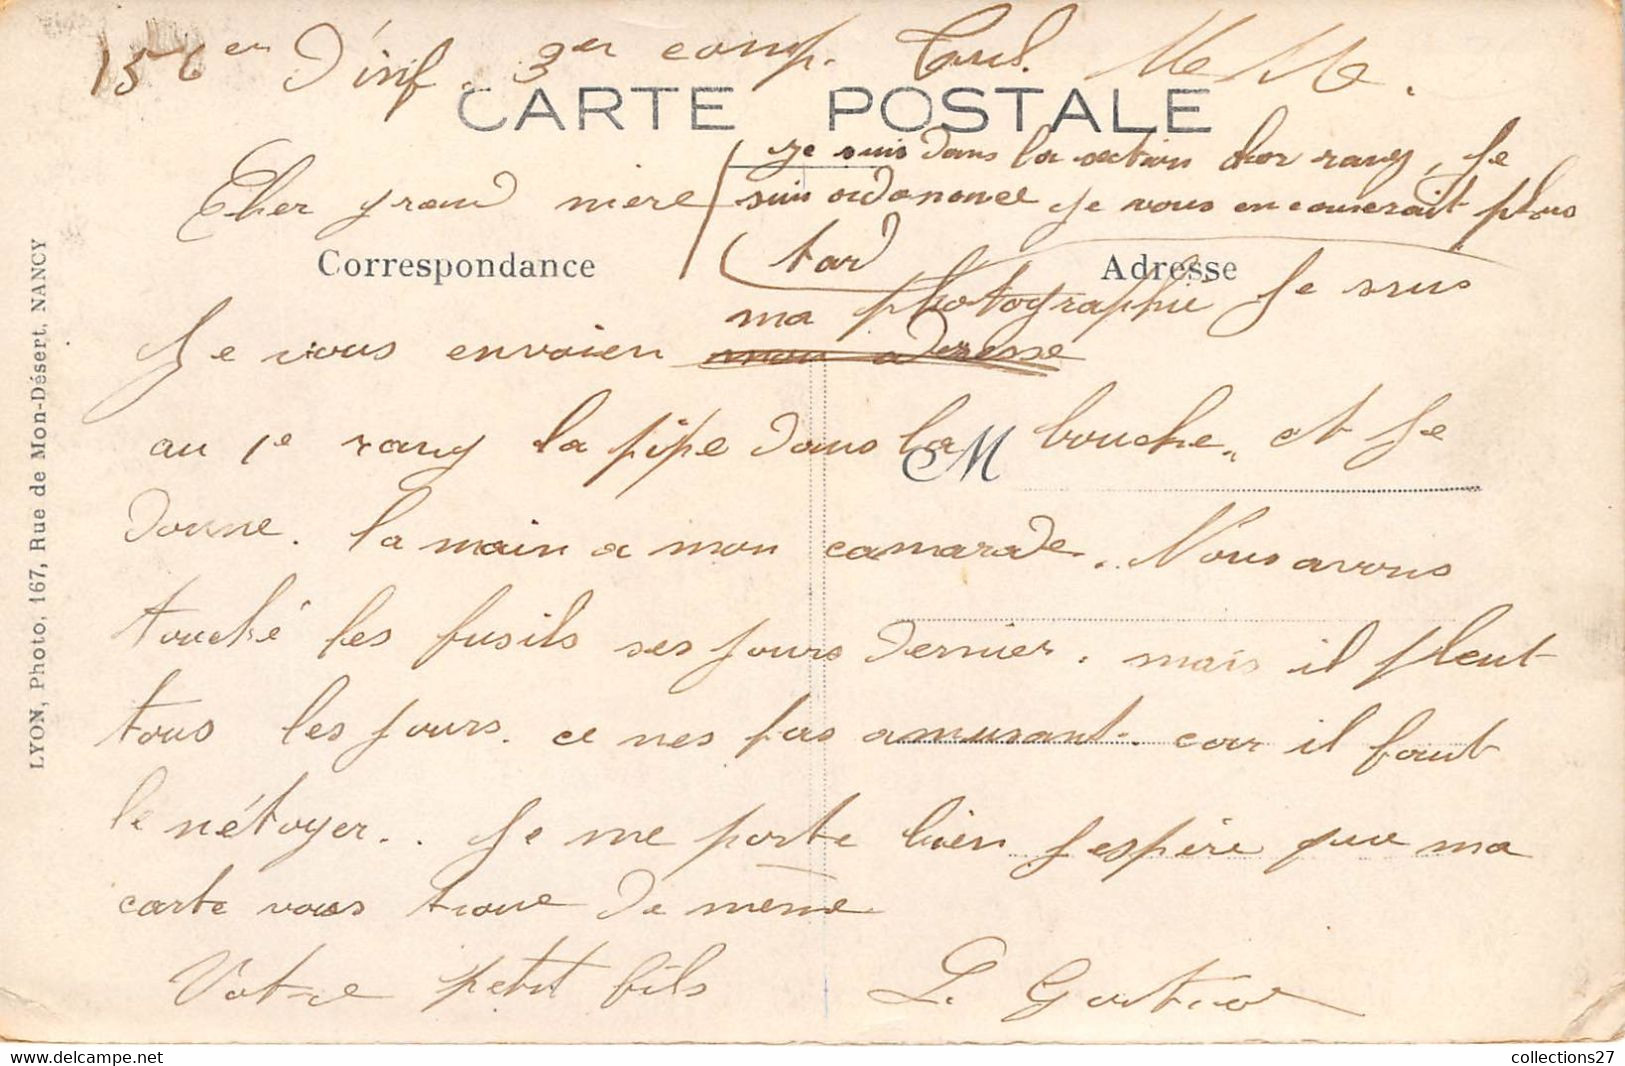 156er D'inf. 3er comp. Toul. M et Me.
CARTE POSTALE
Cher grand mère
je suis dans la section hor rang, Je
suis ordonance Je vous en couverait plus
tard
Correspondance
Adresse
ma photographie Je suis
Je vous envoien mon adresse
au 1e rang la pipe dans la bouche, et Je
M
donne. la main a mon camarade. Nous avons
touché les fusils ses jours dernier. mais il pleut
tous les jours. ce nes pas amusant. car il faut
le nétoyer.. Je me porte bien J'espère que ma
carte vous trouve de même
Votre petit fils
LYON, Photo, 167, Rue de Mon-Désert, NANCY
collections27